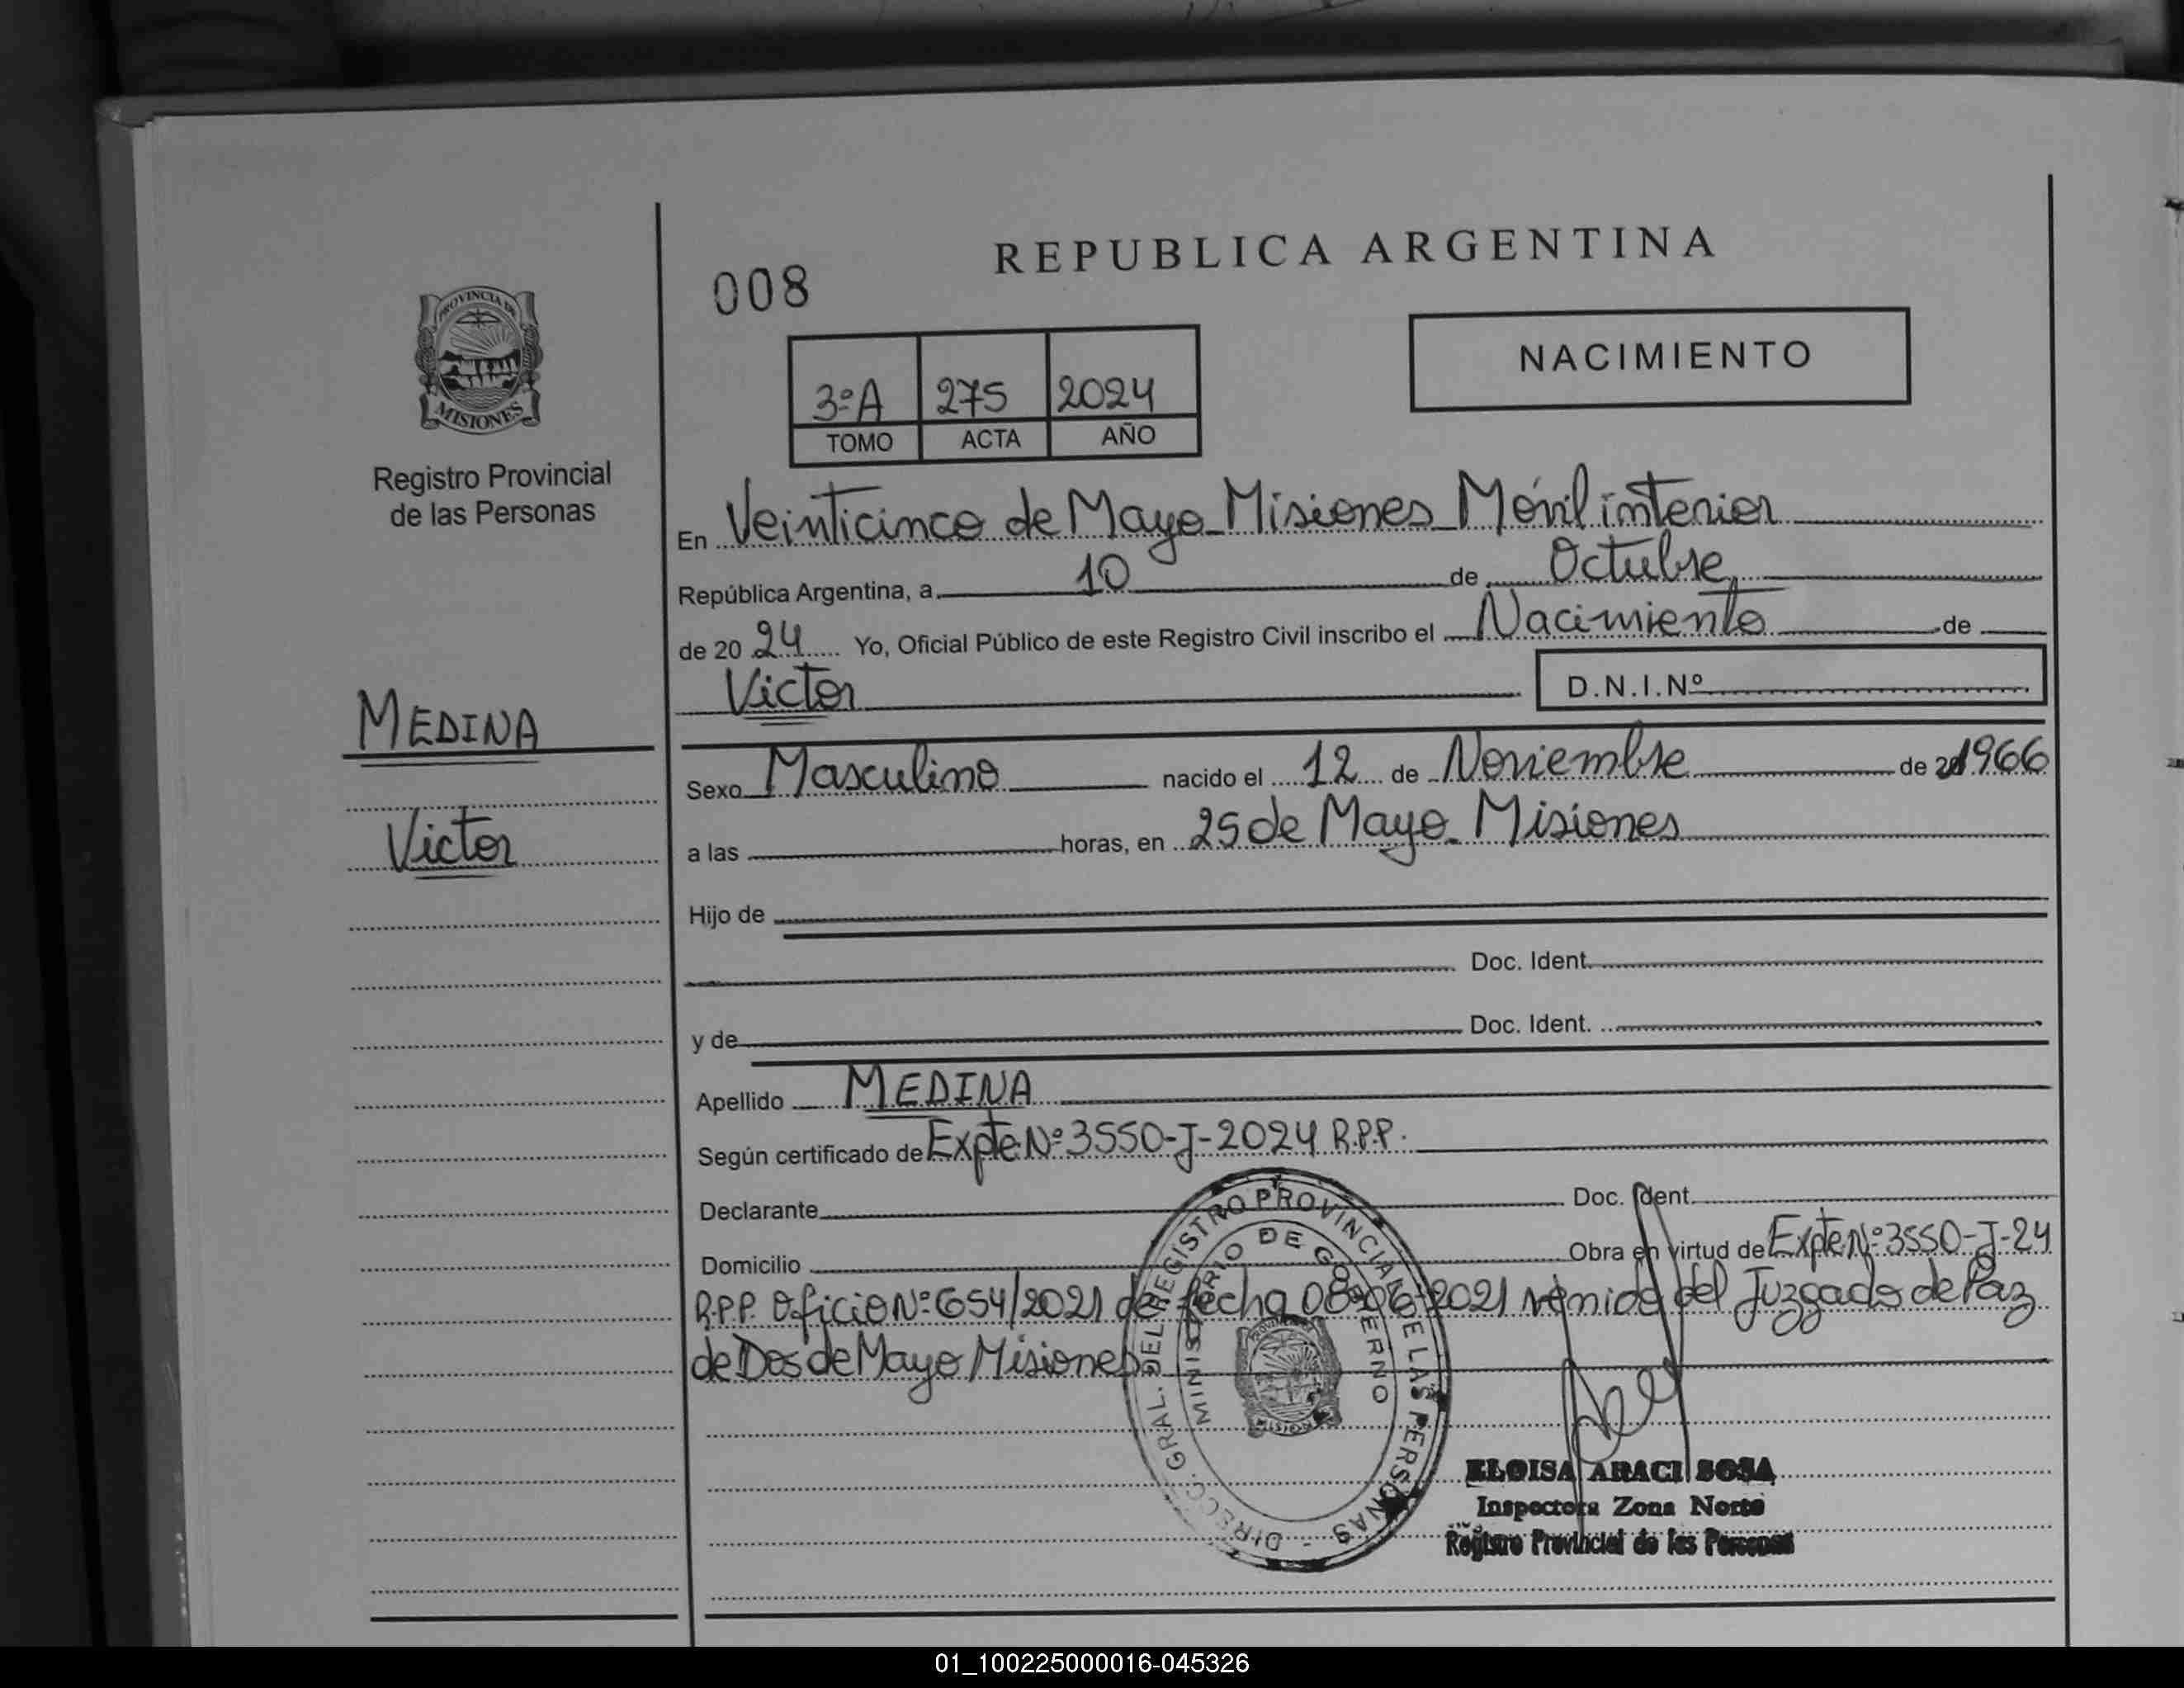 REPUBLICA ARGENTINA
008
NACIMIENTO
3ºA 275 2024
TOMO ACTA AÑO
PROVINCIA DE
MISIONES
Registro Provincial
de las Personas
En Veinticinco de Mayo Misiones Móvil interior
República Argentina, a 10 de Octubre
de 20 24 Yo, Oficial Público de este Registro Civil inscribo el Nacimiento de
Victor D.N.I.Nº
MEDINA
Victor
Sexo Masculino nacido el 12 de Noviembre de 1966
a las horas, en 25 de Mayo Misiones
Hijo de
Doc. Ident.
y de Doc. Ident.
Apellido MEDINA
Según certificado de Expte Nº 3550-J-2024 R.P.P.
Declarante Doc. Ident.
Domicilio Obra en virtud de Expte Nº 3550-J-24
R.P.P. Oficio Nº 654/2021 de fecha 08-06-2021 venido del Juzgado de Paz
de Dos de Mayo Misiones
DIRECC. GRAL. DEL REGISTRO PROVINCIAL DE LAS PERSONAS
MINISTERIO DE GOBIERNO
ELOISA ARACI SOSA
Inspectora Zona Norte
Registro Provincial de las Personas
01_100225000016-045326